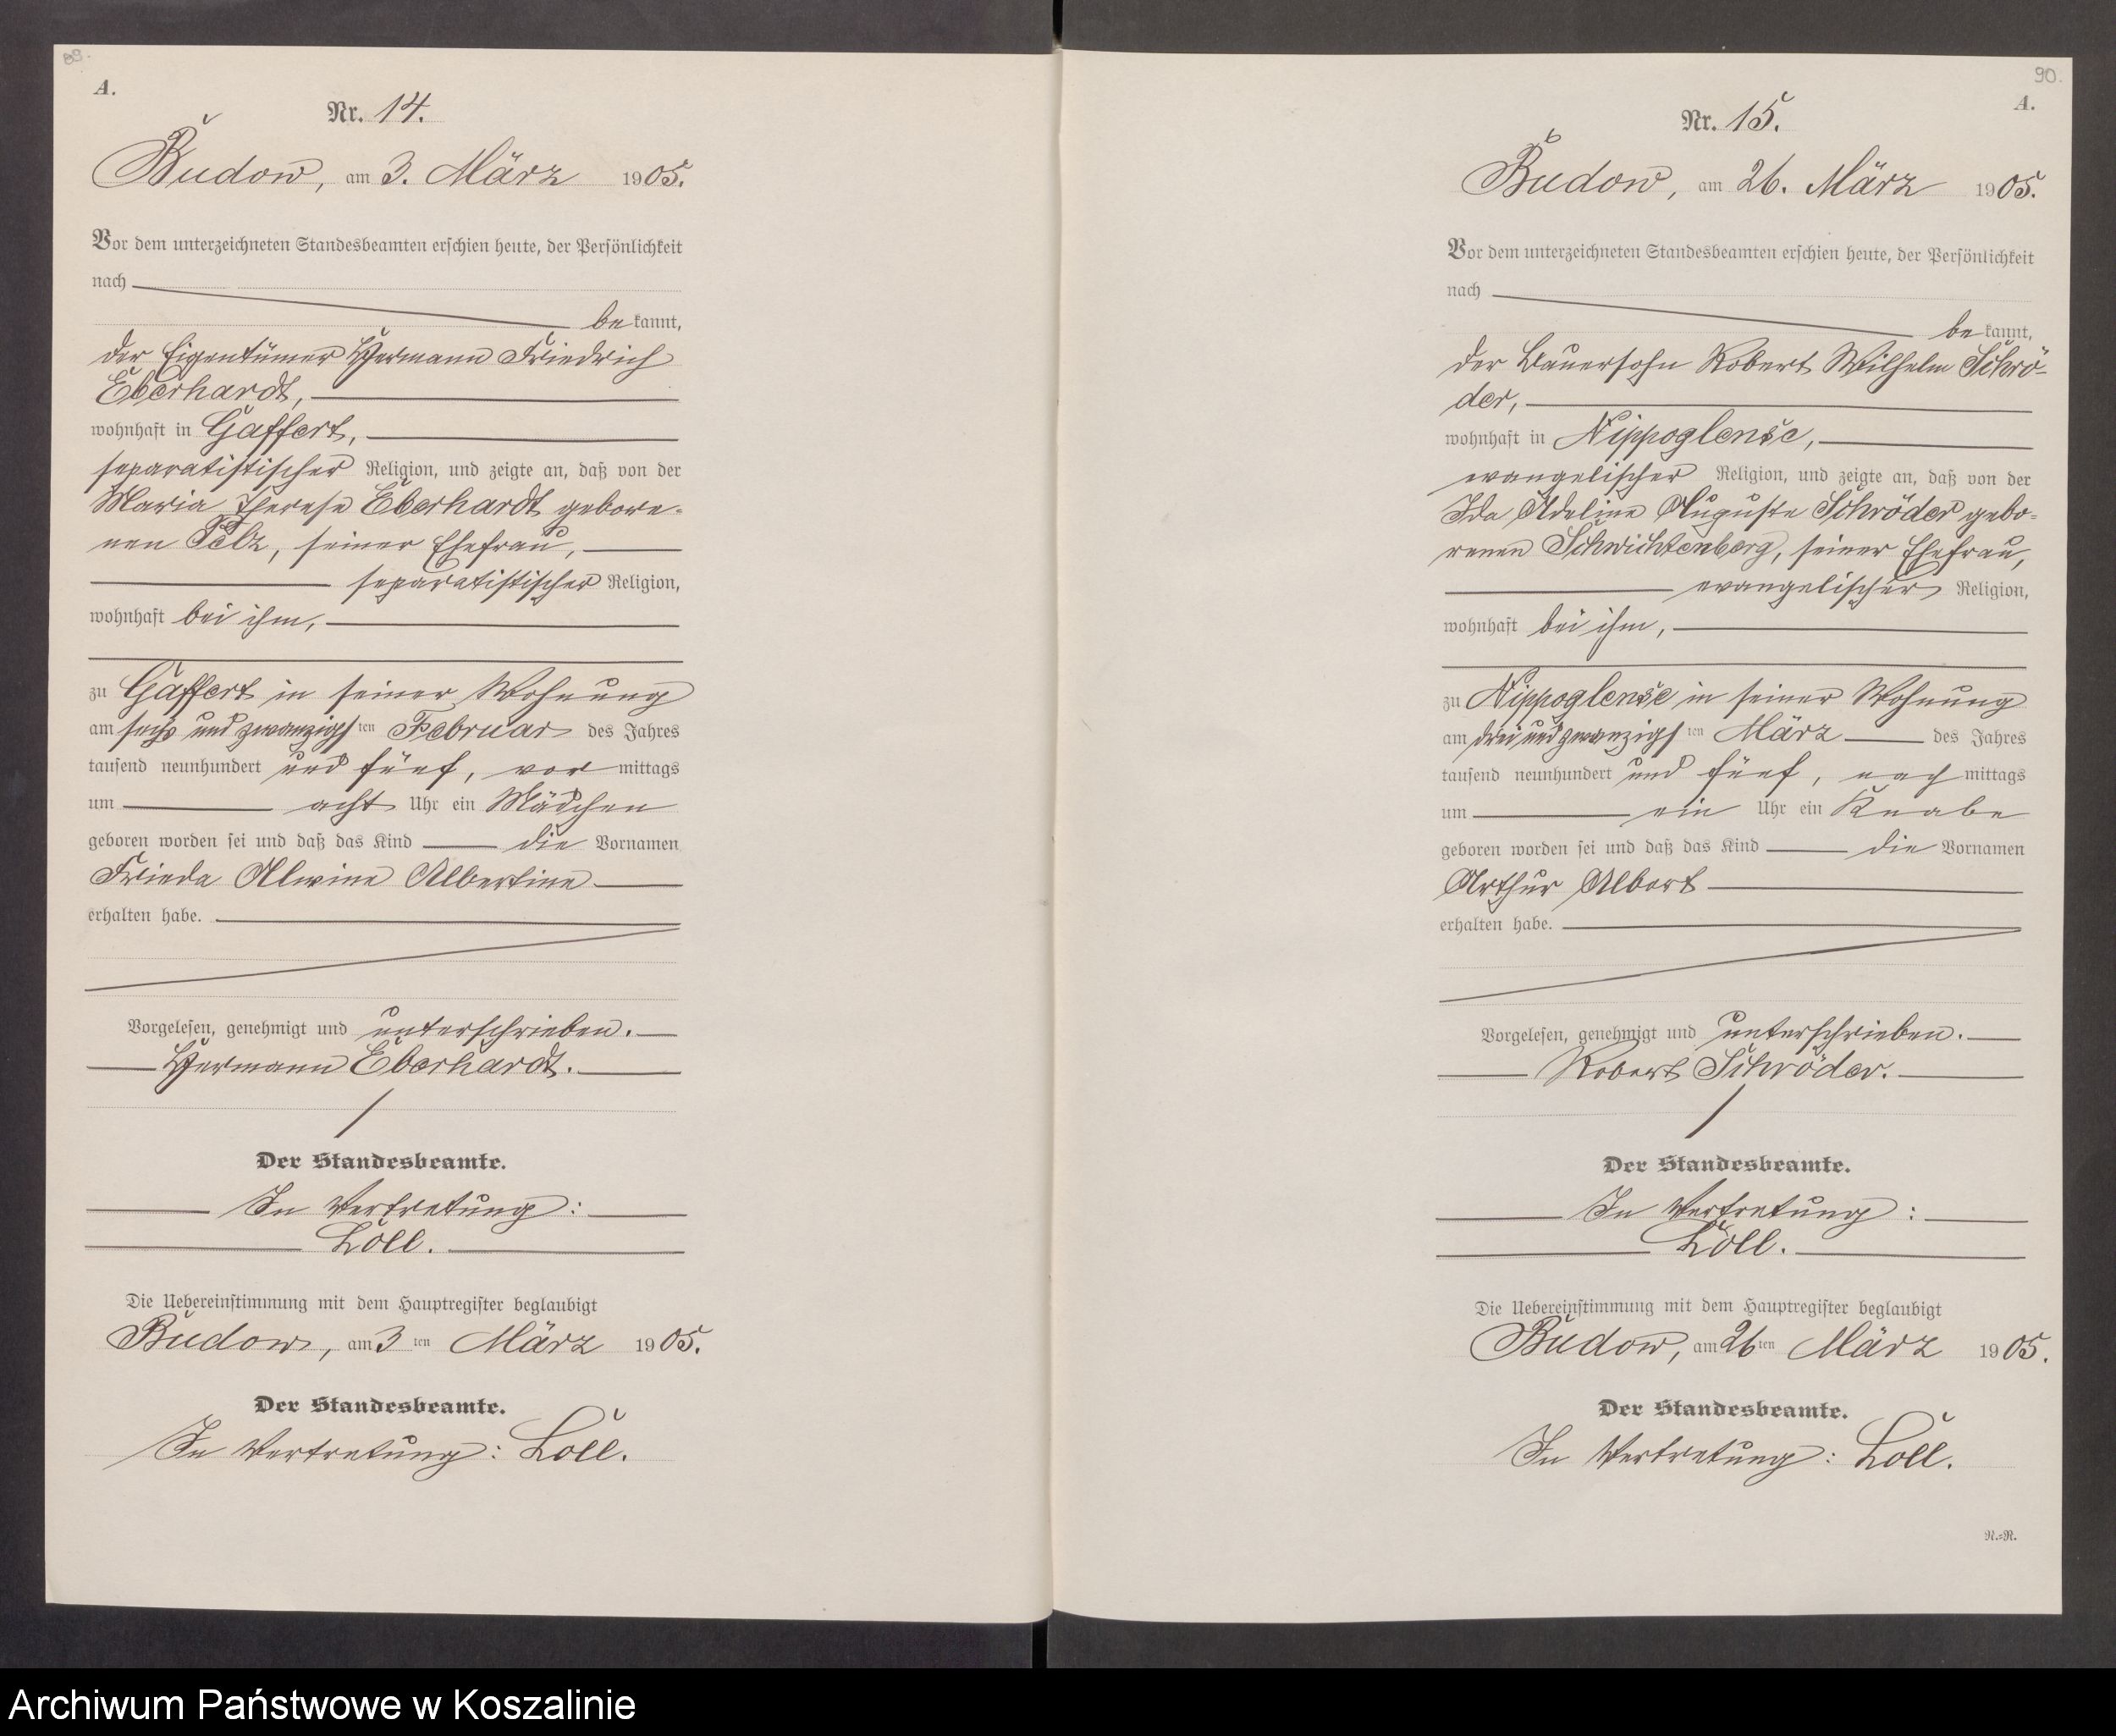 88.
A.
Nr. 14.
Budow, am 3. März 1905.
Vor dem unterzeichneten Standesbeamten erschien heute, der Persönlichkeit
nach
bekannt,
der Eigentümer Hermann Friedrich
Eberhardt,
wohnhaft in Gaffert,
separatistischer Religion, und zeigte an, daß von der
Maria Therese Eberhardt gebore-
nen Pelz, seiner Ehefrau,
separatistischer Religion,
wohnhaft bei ihm,
zu Gaffert in seiner Wohnung
am sechs und zwanzigsten Februar des Jahres
tausend neunhundert und fünf, vormittags
um acht Uhr ein Mädchen
geboren worden sei und daß das Kind die Vornamen
Frieda Alwine Albertine
erhalten habe.
Vorgelesen, genehmigt und unterschrieben.
Hermann Eberhardt.
Der Standesbeamte.
In Vertretung:
Loll.
Die Uebereinstimmung mit dem Hauptregister beglaubigt
Budow, am 3ten März 1905.
Der Standesbeamte.
In Vertretung: Loll.
90.
A.
Nr. 15.
Budow, am 26. März 1905.
Vor dem unterzeichneten Standesbeamten erschien heute, der Persönlichkeit
nach
bekannt,
der Bauersohn Robert Wilhelm Schrö-
der,
wohnhaft in Nippoglense,
evangelischer Religion, und zeigte an, daß von der
Ida Adeline Auguste Schröder gebo-
renen Schwichtenberg, seiner Ehefrau,
evangelischer Religion,
wohnhaft bei ihm,
zu Nippoglense in seiner Wohnung
am drei und zwanzigsten März des Jahres
tausend neunhundert und fünf, nachmittags
um ein Uhr ein Knabe
geboren worden sei und daß das Kind die Vornamen
Arthur Albert
erhalten habe.
Vorgelesen, genehmigt und unterschrieben.
Robert Schröder.
Der Standesbeamte.
In Vertretung:
Loll.
Die Uebereinstimmung mit dem Hauptregister beglaubigt
Budow, am 26ten März 1905.
Der Standesbeamte.
In Vertretung: Loll.
N.=N.
Archiwum Państwowe w Koszalinie